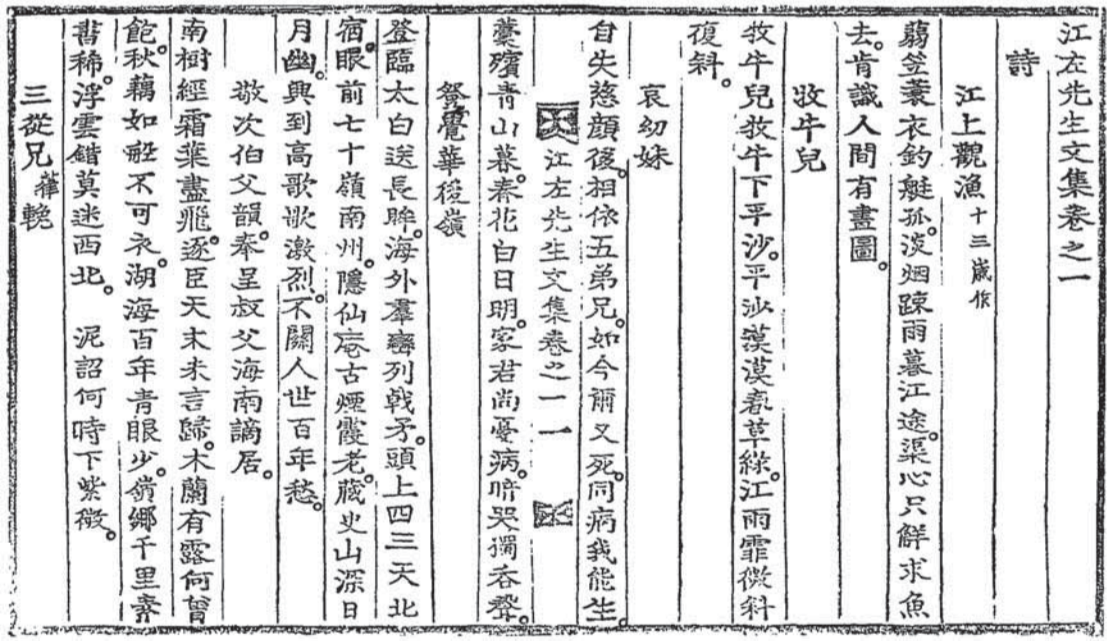 江左先生文集卷之一
詩
江上觀漁 十三歲作
蒻笠蓑衣釣艇孤。淡烟踈雨暮江途。渠心只觧求魚
去。肯識人間有畫圖。
牧牛兒
牧牛兒牧牛下平沙。平沙漠漠春草綠。江雨霏微斜
復斜。
哀幼妹
自失慈顔後。相依五弟兄。如今爾又死。同病我能生。
江左先生文集卷之一 一
藁殯靑山暮。春花白日明。家君尙憂病。暗哭獨吞聲。
登覺華後嶺
登臨太白送長眸。海外羣巒列戟矛。頭上四三天北
宿。眼前七十嶺南州。隱仙庵古煙霞老。藏史山深日
月幽。興到高歌歌激烈。不關人世百年愁。
敬次伯父韻。奉呈叔父海南謫居。
南樹經霜葉盡飛。逐臣天末未言歸。木蘭有露何曾
飽。秋藕如船不可衣。湖海百年靑眼少。嶺鄕千里素
書稀。浮雲錯莫迷西北。泥詔何時下紫微。
三從兄 葎 輓